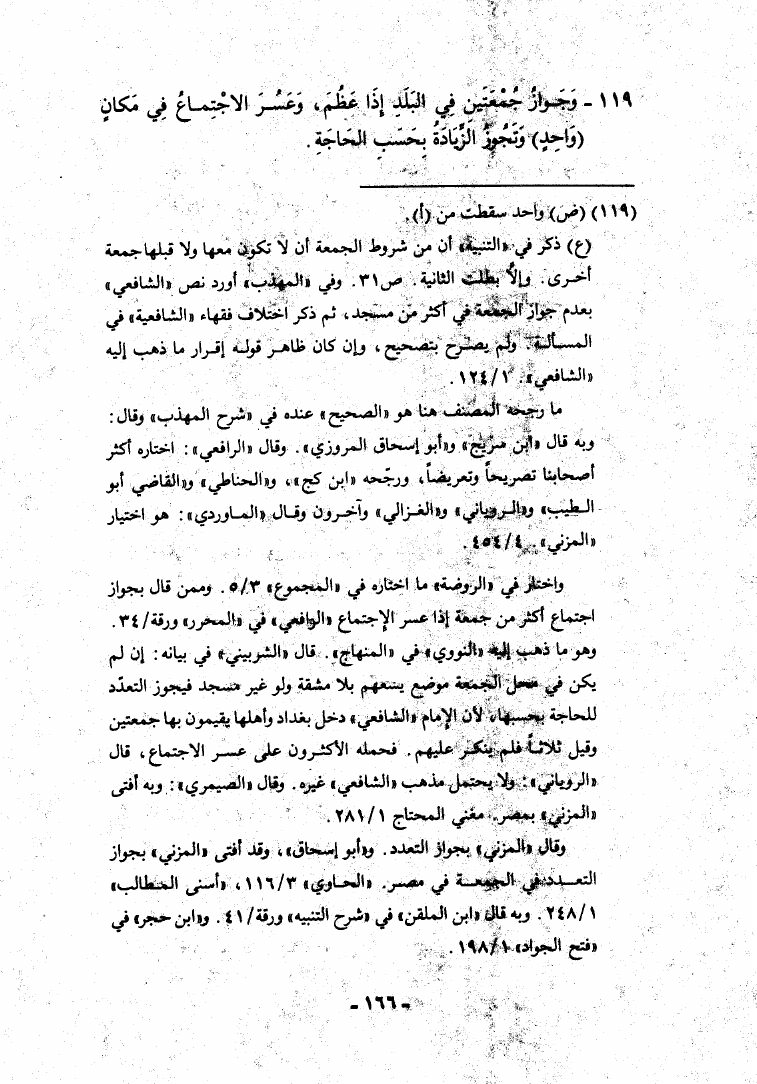 ١١٩ - وَجَوازُ جُمْعَتَين فِي البَلَدِ إذَا عَظُمَ، وَعَسُرَ الاجْتِماعُ فِي مَكانٍ
(وَاحِدٍ) وَتَجُوزُ الزِّيَادَةُ بِحَسَبِ الحَاجَةِ.
(١١٩) (ض) واحد سقطت من (أ).
(ع) ذكر في «التنبيه» أن من شروط الجمعة أن لا تكون معها ولا قبلها جمعة
أخرى. وإلاَّ بطلت الثانية. ص٣١. وفي «المهذب» أورد نص «الشافعي»
بعدم جواز الجمعة في أكثر من مسجد، ثم ذكر اختلاف فقهاء «الشافعية» في
المسألة. ولم يصرح بتصحيح، وإن كان ظاهر قوله إقرار ما ذهب إليه
«الشافعي». ١٢٤/١.
ما رجحه المصنف هنا هو «الصحيح» عنده في «شرح المهذب» وقال:
وبه قال «ابن سريج» و«أبو إسحاق المروزي». وقال «الرافعي»: اختاره أكثر
أصحابنا تصريحاً وتعريضاً، ورجّحه «ابن كج»، و«الحناطي» و«القاضي أبو
الطيب» و«الروياني» و«الغزالي» وآخرون وقال «الماوردي»: هو اختيار
«المزني». ٤٥٤/٤.
واختار في «الروضة» ما اختاره في «المجموع» ٥/٣. وممن قال بجواز
اجتماع أكثر من جمعة إذا عسر الإجتماع «الرافعي» في «المحرر» ورقة/٣٤.
وهو ما ذهب إليه «النووي» في «المنهاج». قال «الشربيني» في بيانه: إن لم
يكن في محل الجمعة موضع يسعهم بلا مشقة ولو غير مسجد فيجوز التعدّد
للحاجة بحسبها، لأن الإمام «الشافعي» دخل بغداد وأهلها يقيمون بها جمعتين
وقيل ثلاثاً فلم ينكر عليهم. فحمله الأكثرون على عسر الاجتماع، قال
«الروياني»: ولا يحتمل مذهب «الشافعي» غيره. وقال «الصيمري»: وبه أفتى
«المزني» بمصر. مغني المحتاج ٢٨١/١.
وقال «المزني» بجواز التعدد. و«أبو إسحاق»، وقد أفتى «المزني» بجواز
التعدد في الجمعة في مصر. «الحاوي» ١١٦/٣، «أسنى المطالب»
٢٤٨/١. وبه قال «ابن الملقن» في «شرح التنبيه» ورقة/٤١. و«ابن حجر» في
«فتح الجواد» ١٩٨/١.
- ١٦٦ -